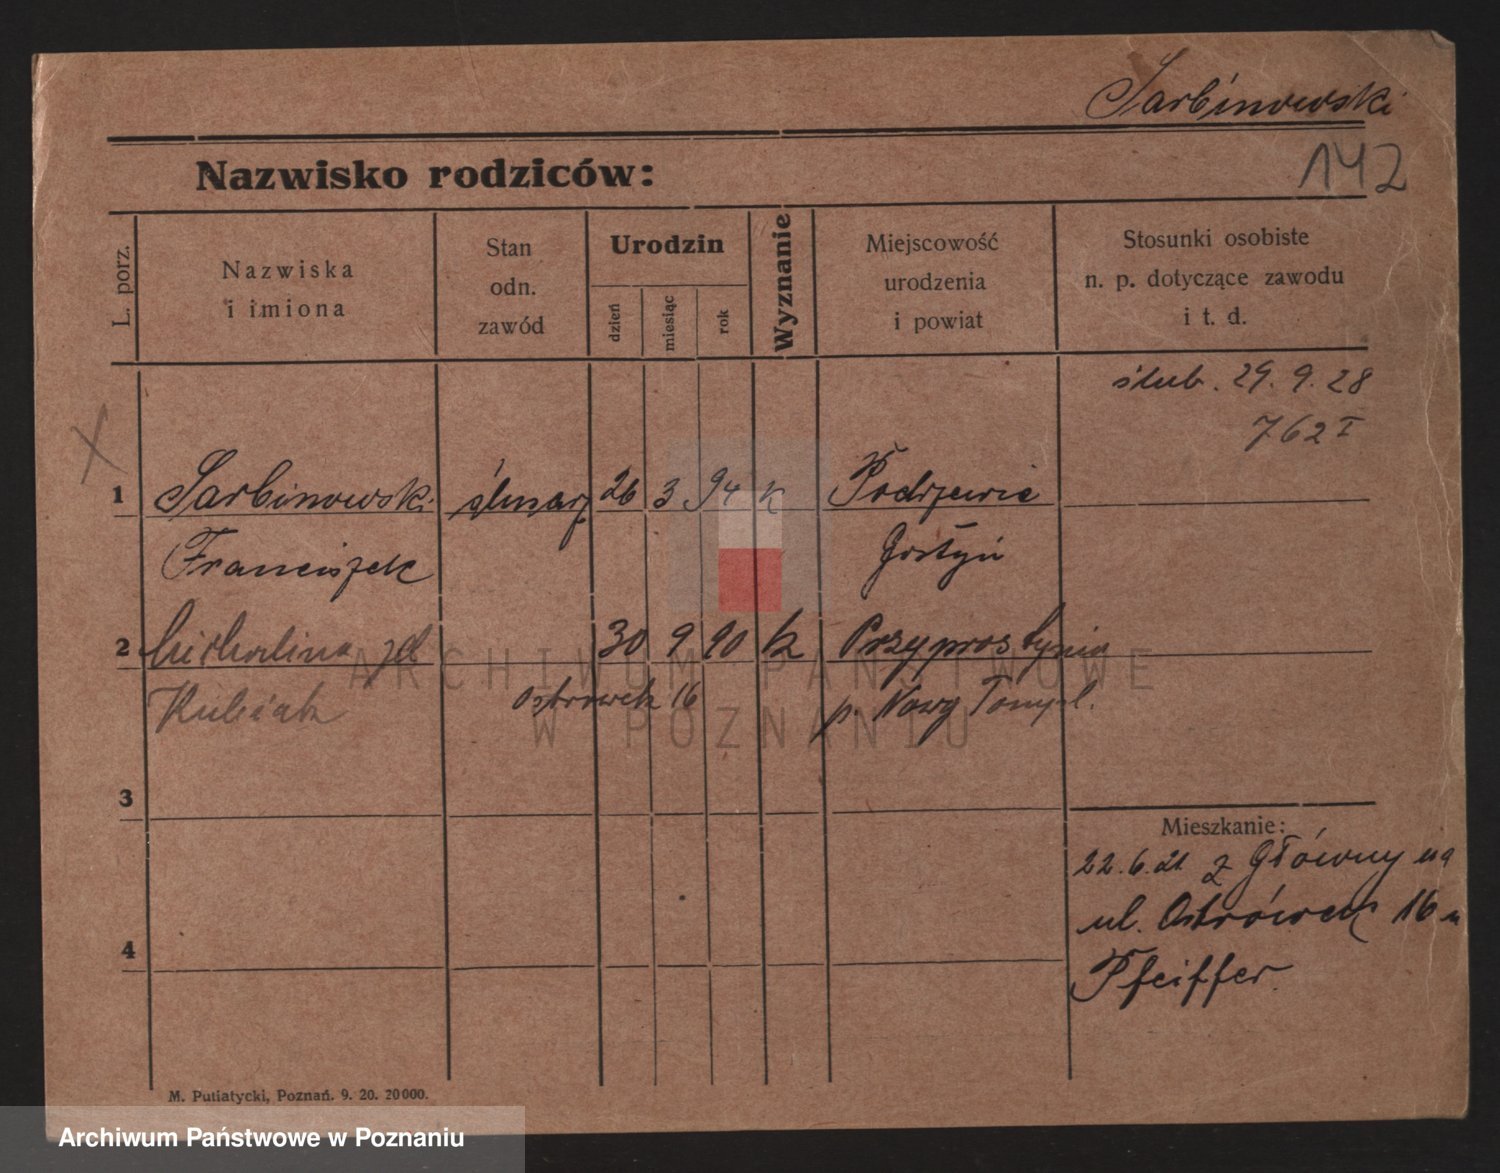 Sarbinowski
142
Nazwisko rodziców:
L. porz.
Nazwiska
i imiona
Stan
odn.
zawód
Urodzin
dzień
miesiąc
rok
Wyznanie
Miejscowość
urodzenia
i powiat
Stosunki osobiste
n. p. dotyczące zawodu
i t. d.
ślub. 29. 9. 28
762 I
X
1 Sarbinowski ślusarz 26 3 94 k Podrzewie
Franciszek Gostyń
2 Michalina zd 30 9 90 k Przyprostynia
Kubiak Ostrówek 16 p. Nowy Tomyśl.
3
Mieszkanie:
22.6.21 z Główny na
ul. Ostrówek 16 u
4
Pfeiffer
M. Putiatycki, Poznań. 9. 20. 20000.
ARCHIWUM PAŃSTWOWE
W POZNANIU
Archiwum Państwowe w Poznaniu